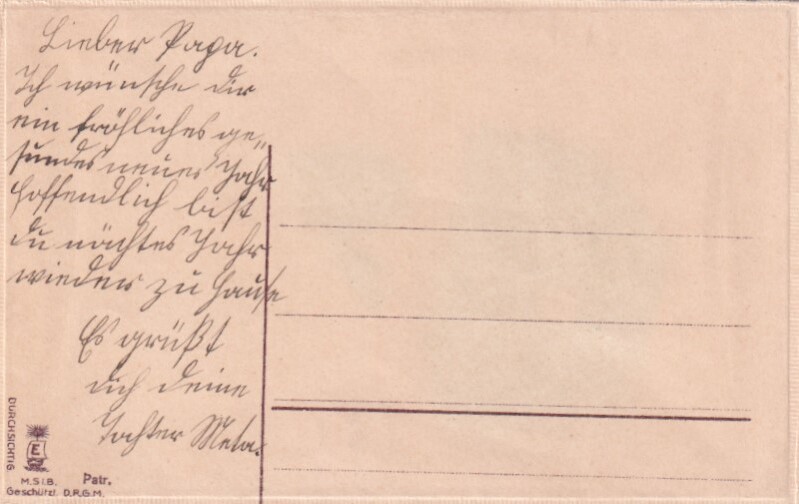 Lieber Papa.
Ich wünsche dir
ein fröhliches ge„
sundes neues Jahr
hoffendlich bist
du nächtes Jahr
wieder zu hause
Es grüßt
dich deine
Tochter Meta.
DURCHSICHTIG
E
M.S.i.B. Patr.
Geschützt. D.R.G.M.